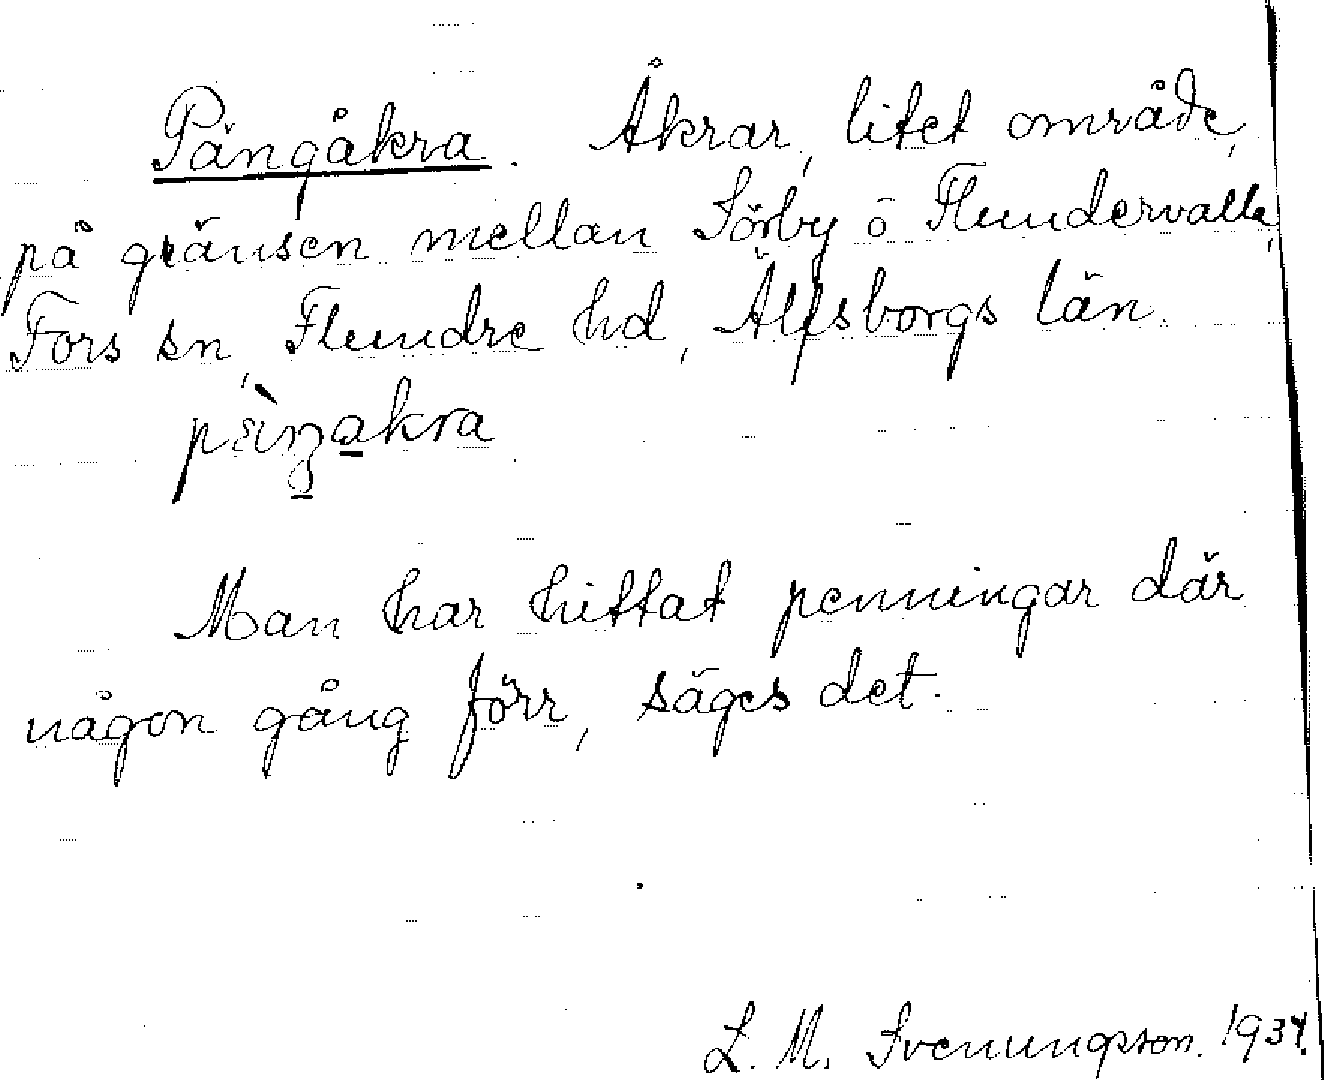 Pängåkra. Åkrar, litet område,
på gränsen mellan Sörby o Flundervalla,
Fors sn, Flundre hd, Älfsborgs län.
Man har hittat penningar där
någon gång förr, säges det.
L. M. Svenungsson. 1934.